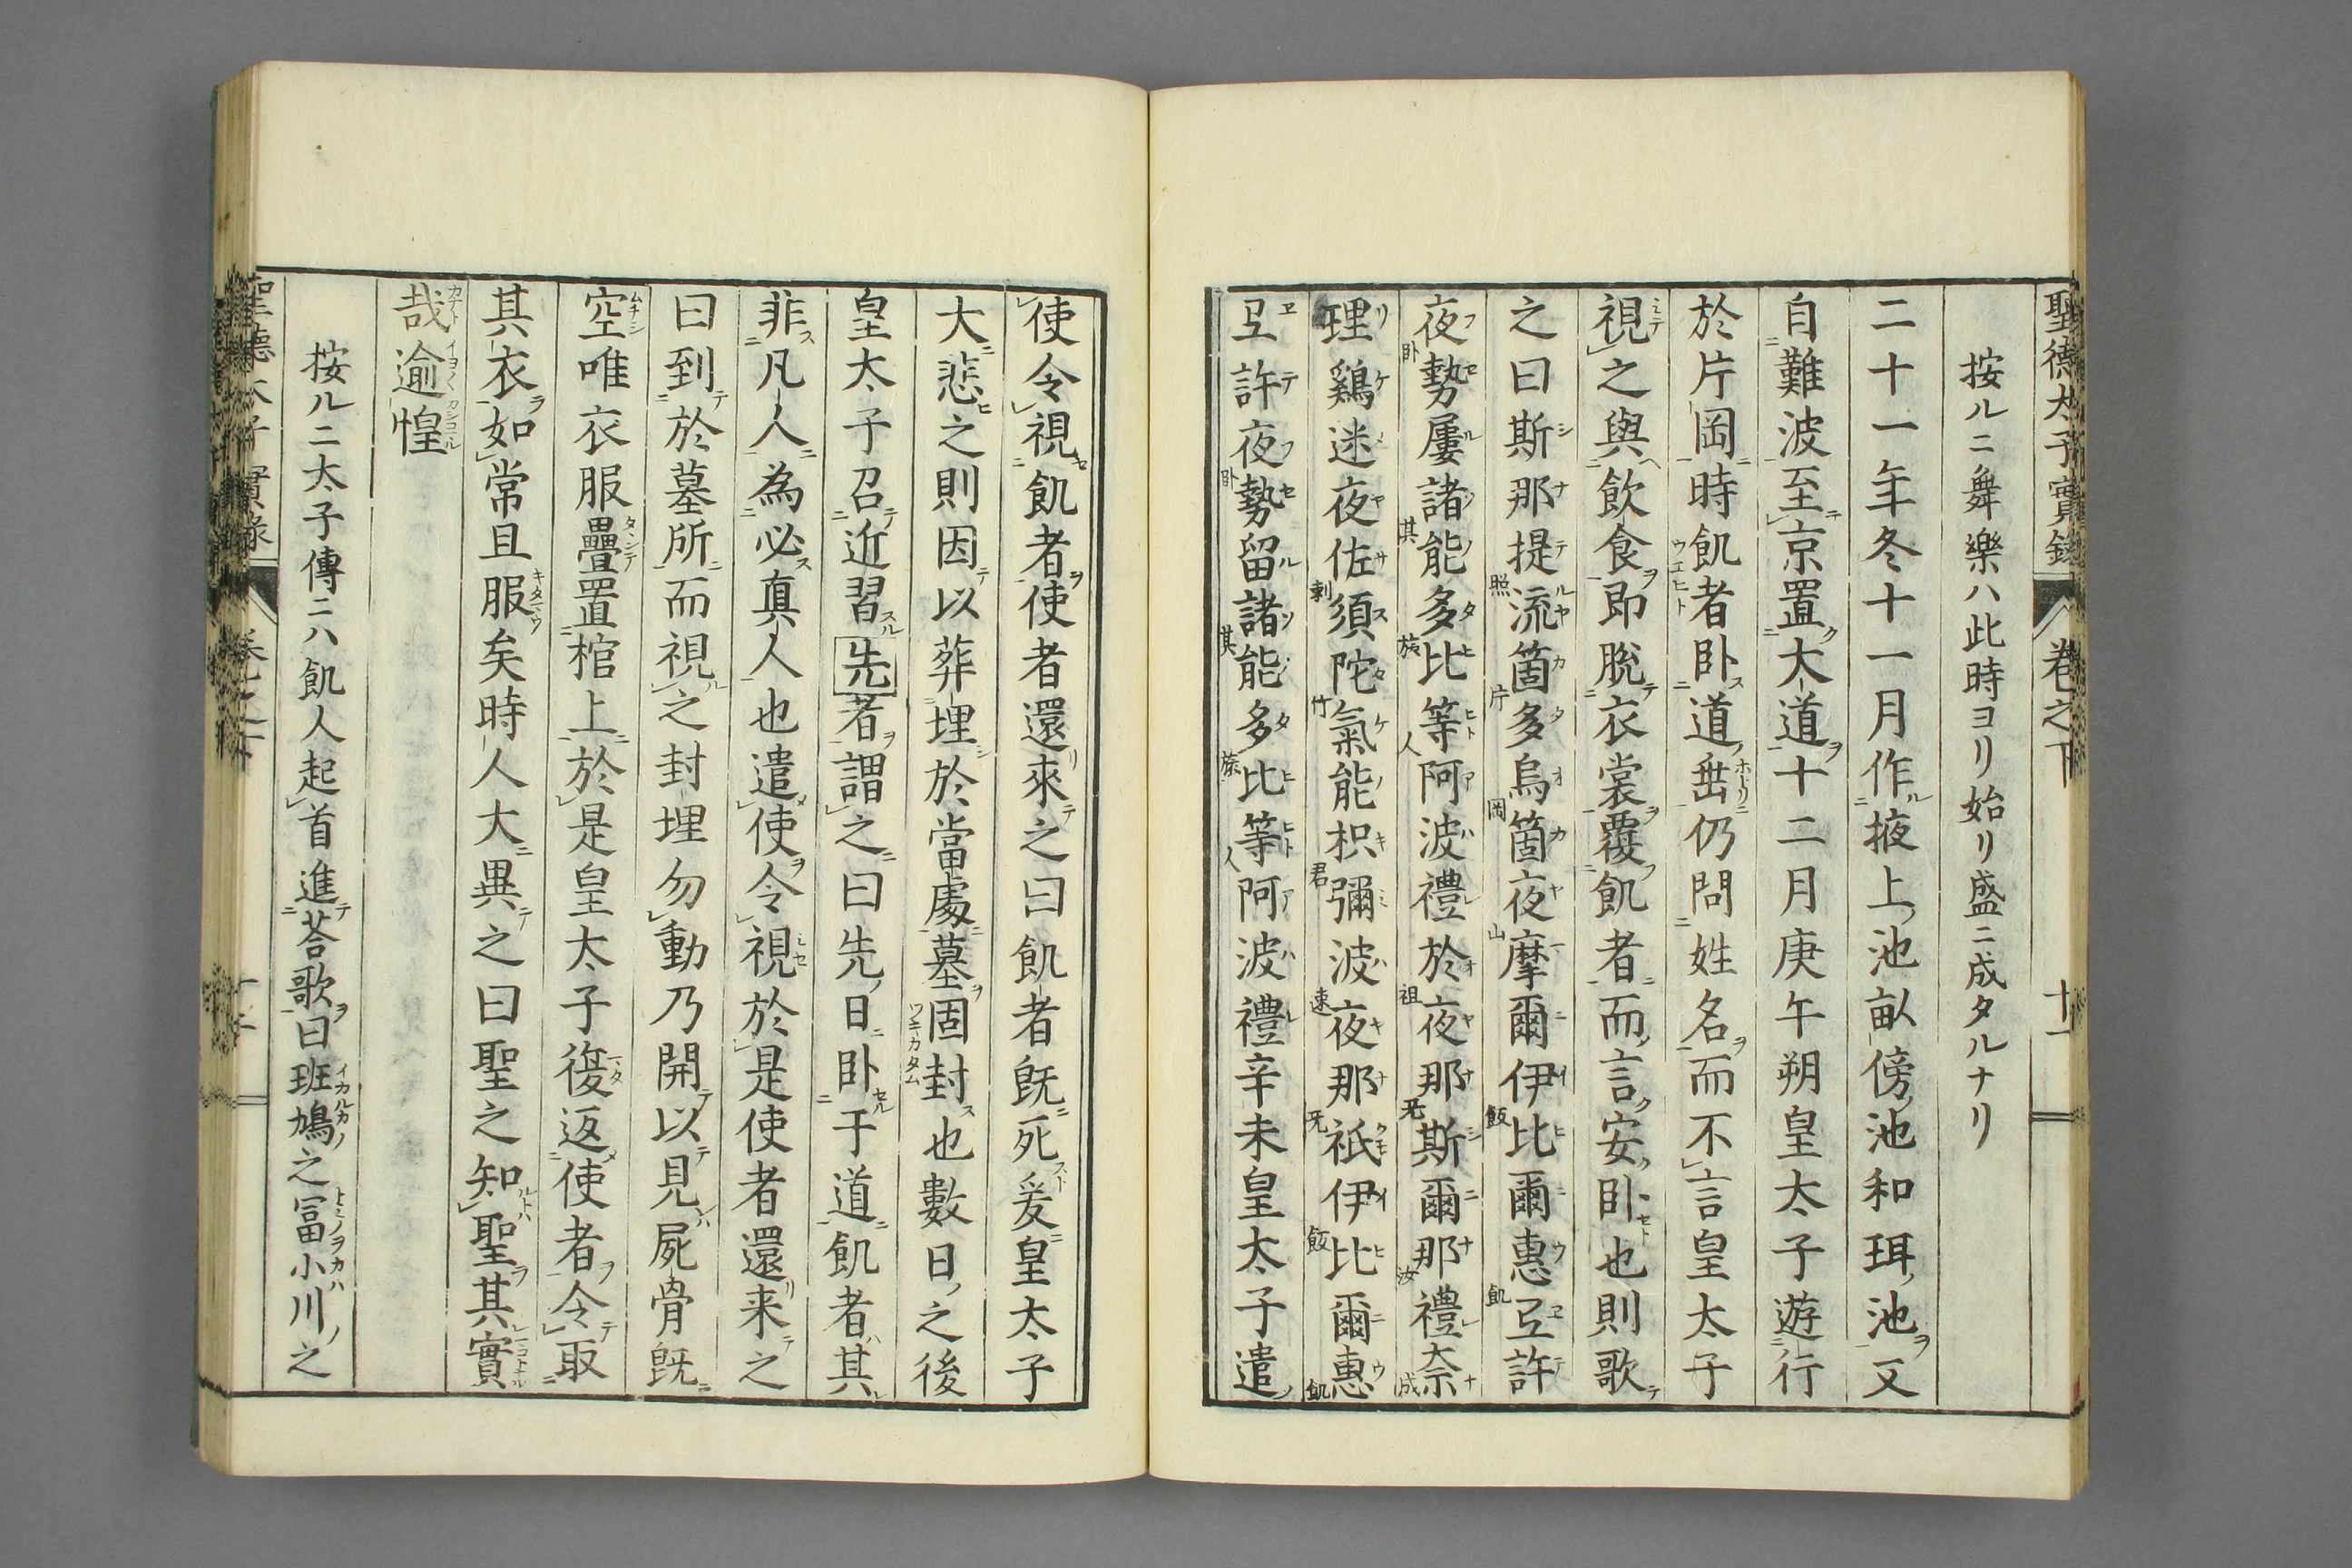 聖德太子實錄
卷之下
十一
按ルニ舞樂ハ此時ヨリ始リ盛ニ成タルナリ
二十一年冬十一月作掖上池畝傍池和珥池又
自難波至京置大道十二月庚午朔皇太子遊行
於片岡時飢者卧道垂仍問姓名而不言皇太子
視之與飲食即脫衣裳覆飢者而言安卧也則歌
之曰斯那提流箇多烏箇夜摩爾伊比爾惠弖許
夜勢屢諸能多比等阿波禮於夜那斯爾那禮奈
理鷄迷夜佐須陀氣能枳彌波夜那祇伊比爾惠
弖許夜勢留諸能多比等阿波禮辛未皇太子遣
使令視飢者使者還來之曰飢者既死爰皇太子
大悲之則因以葬埋於當處墓固封也數日之後
皇太子召近習先者謂之曰先日卧于道飢者其
非凡人為必真人也遣使令視於是使者還来之
曰到於墓所而視之封埋勿動乃開以見屍骨既
空唯衣服疊置棺上於是皇太子復返使者令取
其衣如常且服矣時人大異之曰聖之知聖其實
哉逾惶
按ルニ太子傳ニハ飢人起首進荅歌曰班鳩之冨小川之
聖德太子實錄
卷之下